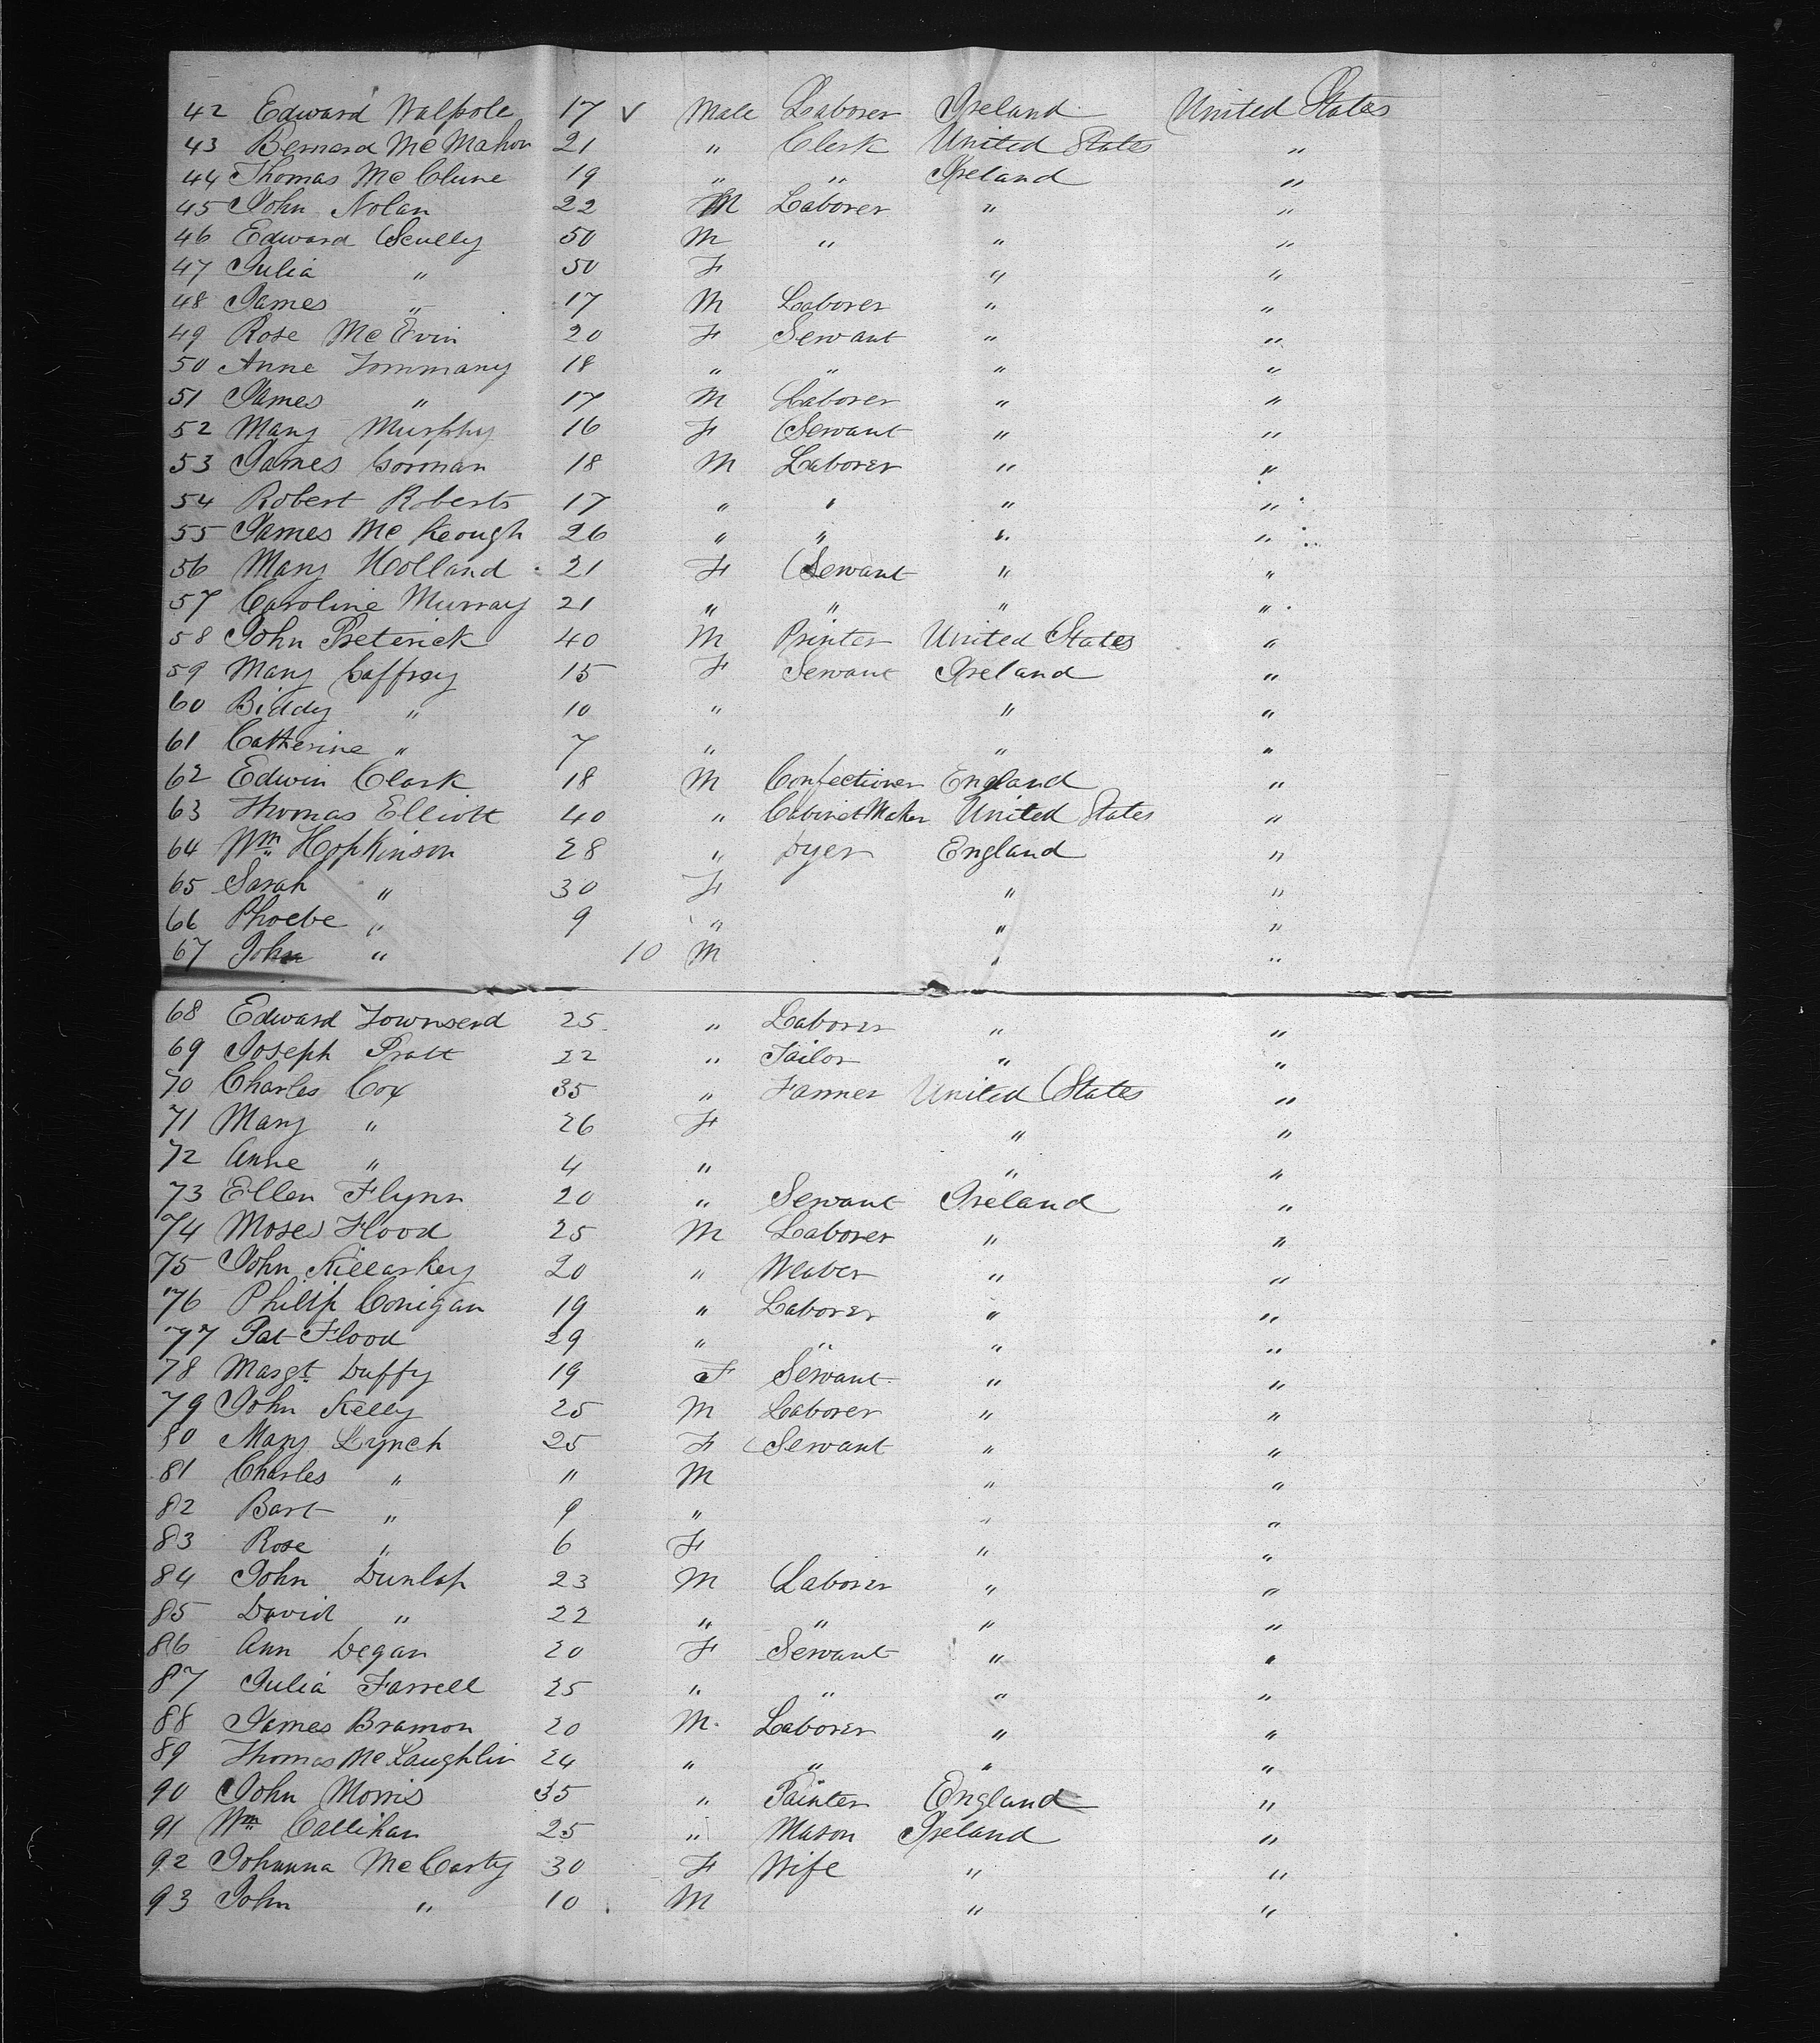 42 Edward Walpole 17 v Male Laborer Ireland United States
43 Bernard McMahon 21 " Clerk United States "
44 Thomas McClune 19 " " Ireland "
45 John Nolan 22 M Laborer " "
46 Edward Scully 50 M " " "
47 Julia " 50 F " "
48 James " 17 M Laborer " "
49 Rose McEvin 20 F Servant " "
50 Anne Tommany 18 " " " "
51 James " 17 M Laborer " "
52 Mary Murphy 16 F Servant " "
53 James Gorman 18 M Laborer " "
54 Robert Roberts 17 " " " "
55 James McKeough 26 " " " "
56 Mary Holland 21 F Servant " "
57 Caroline Murray 21 " " " "
58 John Preterick 40 M Printer United States "
59 Mary Caffrey 15 F Servant Ireland "
60 Biddy " 10 " " "
61 Catherine " 7 " " "
62 Edwin Clark 18 M Confectioner England "
63 Thomas Elliott 40 " Cabinet Maker United States "
64 Wm Hopkinson 28 " Dyer England "
65 Sarah " 30 F " "
66 Phoebe " 9 " " "
67 John " 10 M " "
68 Edward Townsend 25 " Laborer " "
69 Joseph Pratt 22 " Tailor " "
70 Charles Cox 35 " Farmer United States "
71 Mary " 26 F " "
72 Anne " 4 " " "
73 Ellen Flynn 20 " Servant Ireland "
74 Moses Flood 25 M Laborer " "
75 John Killarkey 20 " Weaver " "
76 Philip Conigan 19 " Laborer " "
77 Pat Flood 29 " " " "
78 Margt Duffy 19 F Servant " "
79 John Kelly 25 M Laborer " "
80 Mary Lynch 25 F Servant " "
81 Charles " 11 M " "
82 Bart " 9 " " "
83 Rose " 6 F " "
84 John Dunlap 23 M Laborer " "
85 David " 22 " " " "
86 Ann Degan 20 F Servant " "
87 Julia Farrell 25 " " " "
88 James Bramon 20 M. Laborer " "
89 Thomas McLaughlin 24 " " " "
90 John Morris 35 " Painter England "
91 Wm Callihan 25 " Mason Ireland "
92 Johanna McCarty 30 F Wife " "
93 John " 10 M " "